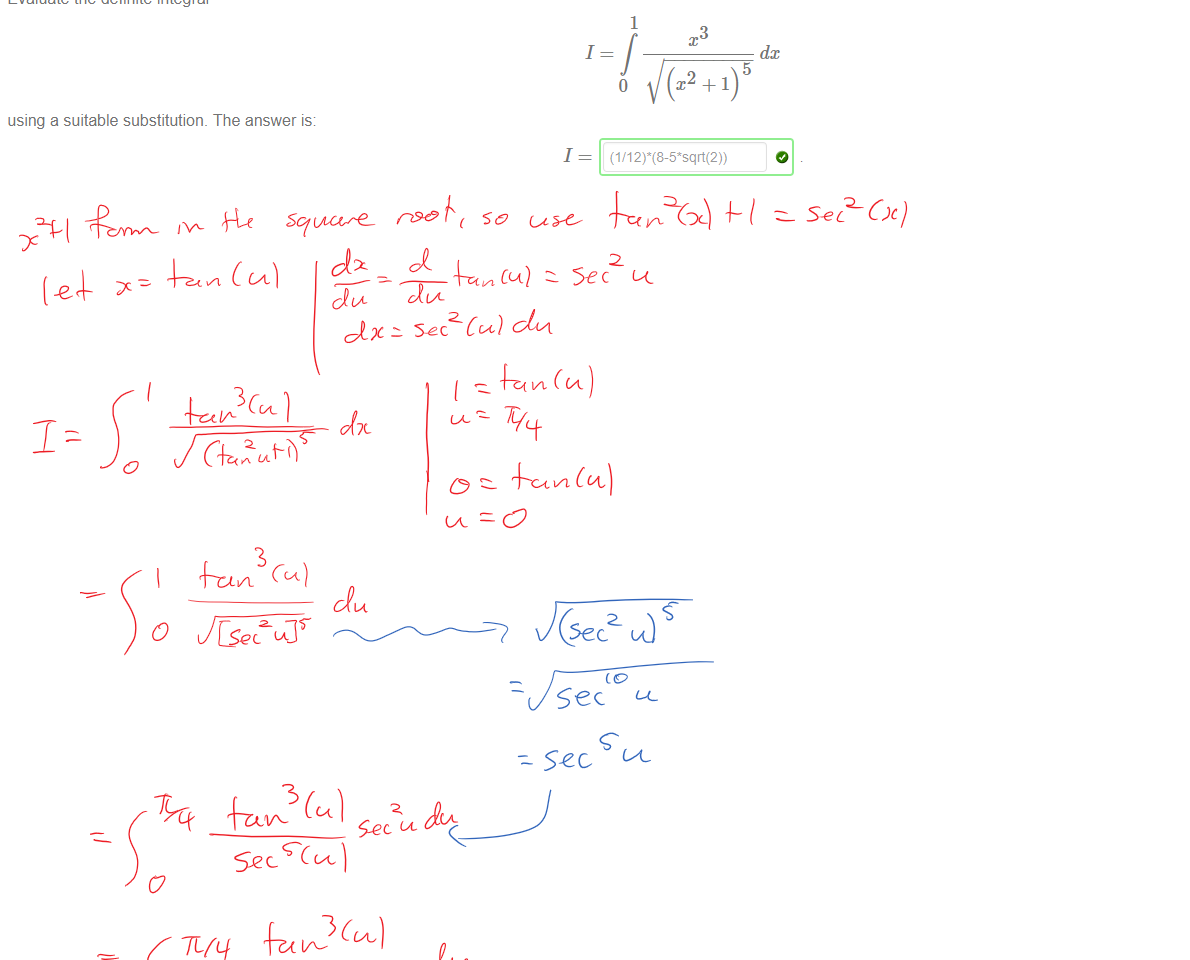 Evaluate the definite integral
I = ∫₀¹ x³ / √((x² + 1)⁵) dx
using a suitable substitution. The answer is:
I = (1/12)*(8-5*sqrt(2)) .
x²+1 form in the square root, so use tan²(x) + 1 = sec²(x)
let x = tan(u) | dx/du = d/du tan(u) = sec² u
dx = sec²(u) du
I = ∫₀¹ tan³(u) / √((tan²u+1)⁵) dx | 1 = tan(u)
u = π/4
0 = tan(u)
u = 0
= ∫₀¹ tan³(u) / √([sec²u]⁵) du → √((sec² u)⁵)
= √(sec¹⁰ u)
= sec⁵ u
= ∫₀^(π/4) tan³(u) / sec⁵(u) sec²u du
= ∫ π/4 tan³(u)